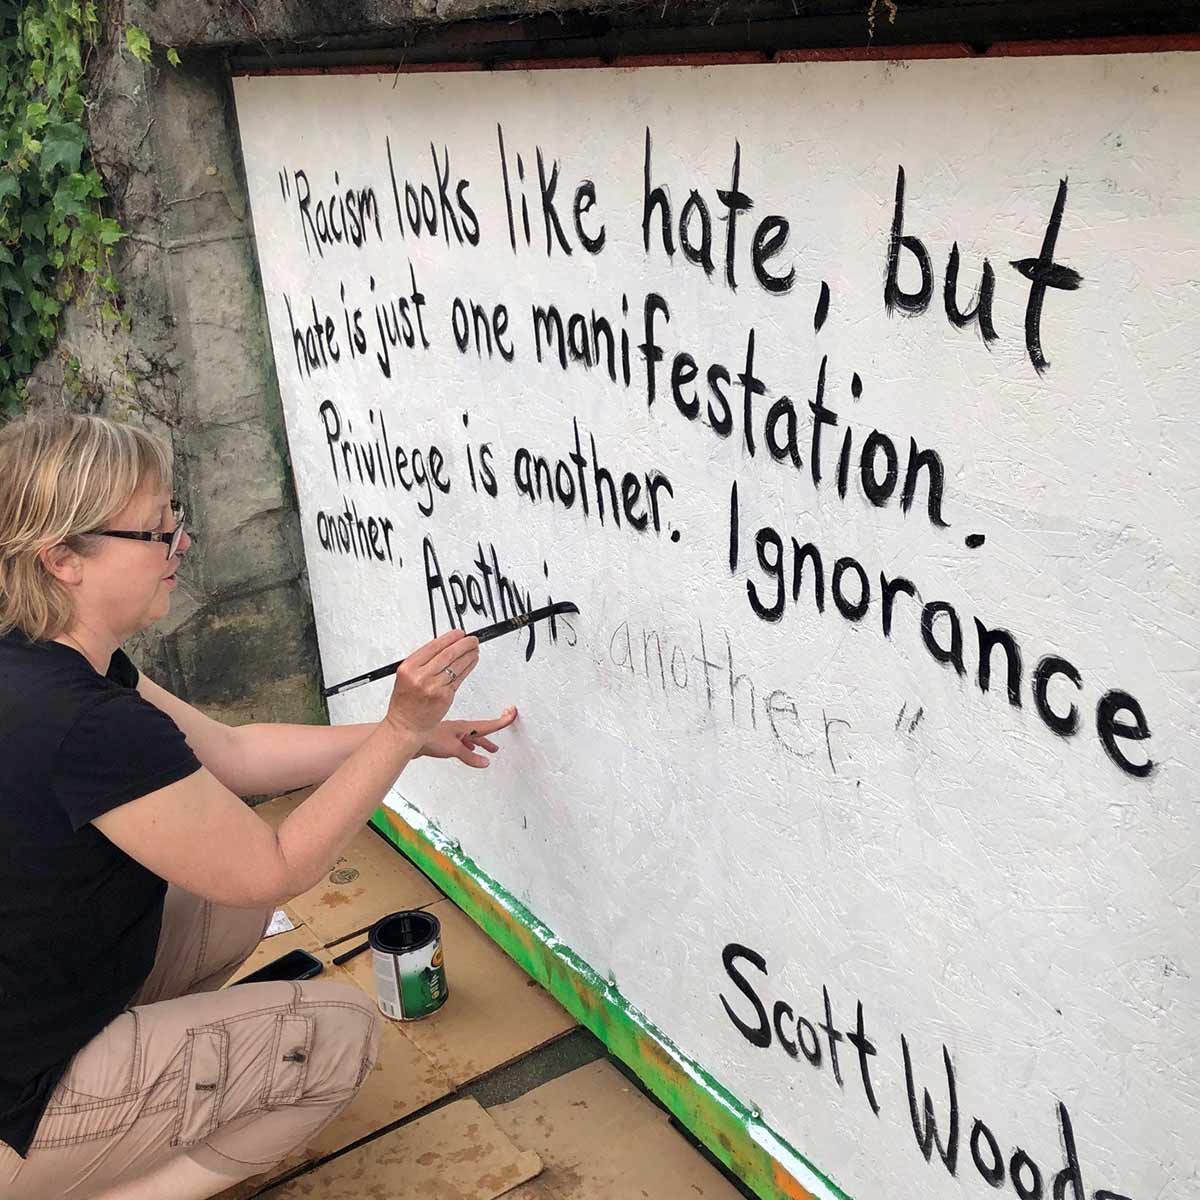 "Racism looks like hate, but
hate is just one manifestation.
Privilege is another. Ignorance
another. Apathy is another."
Scott Wood